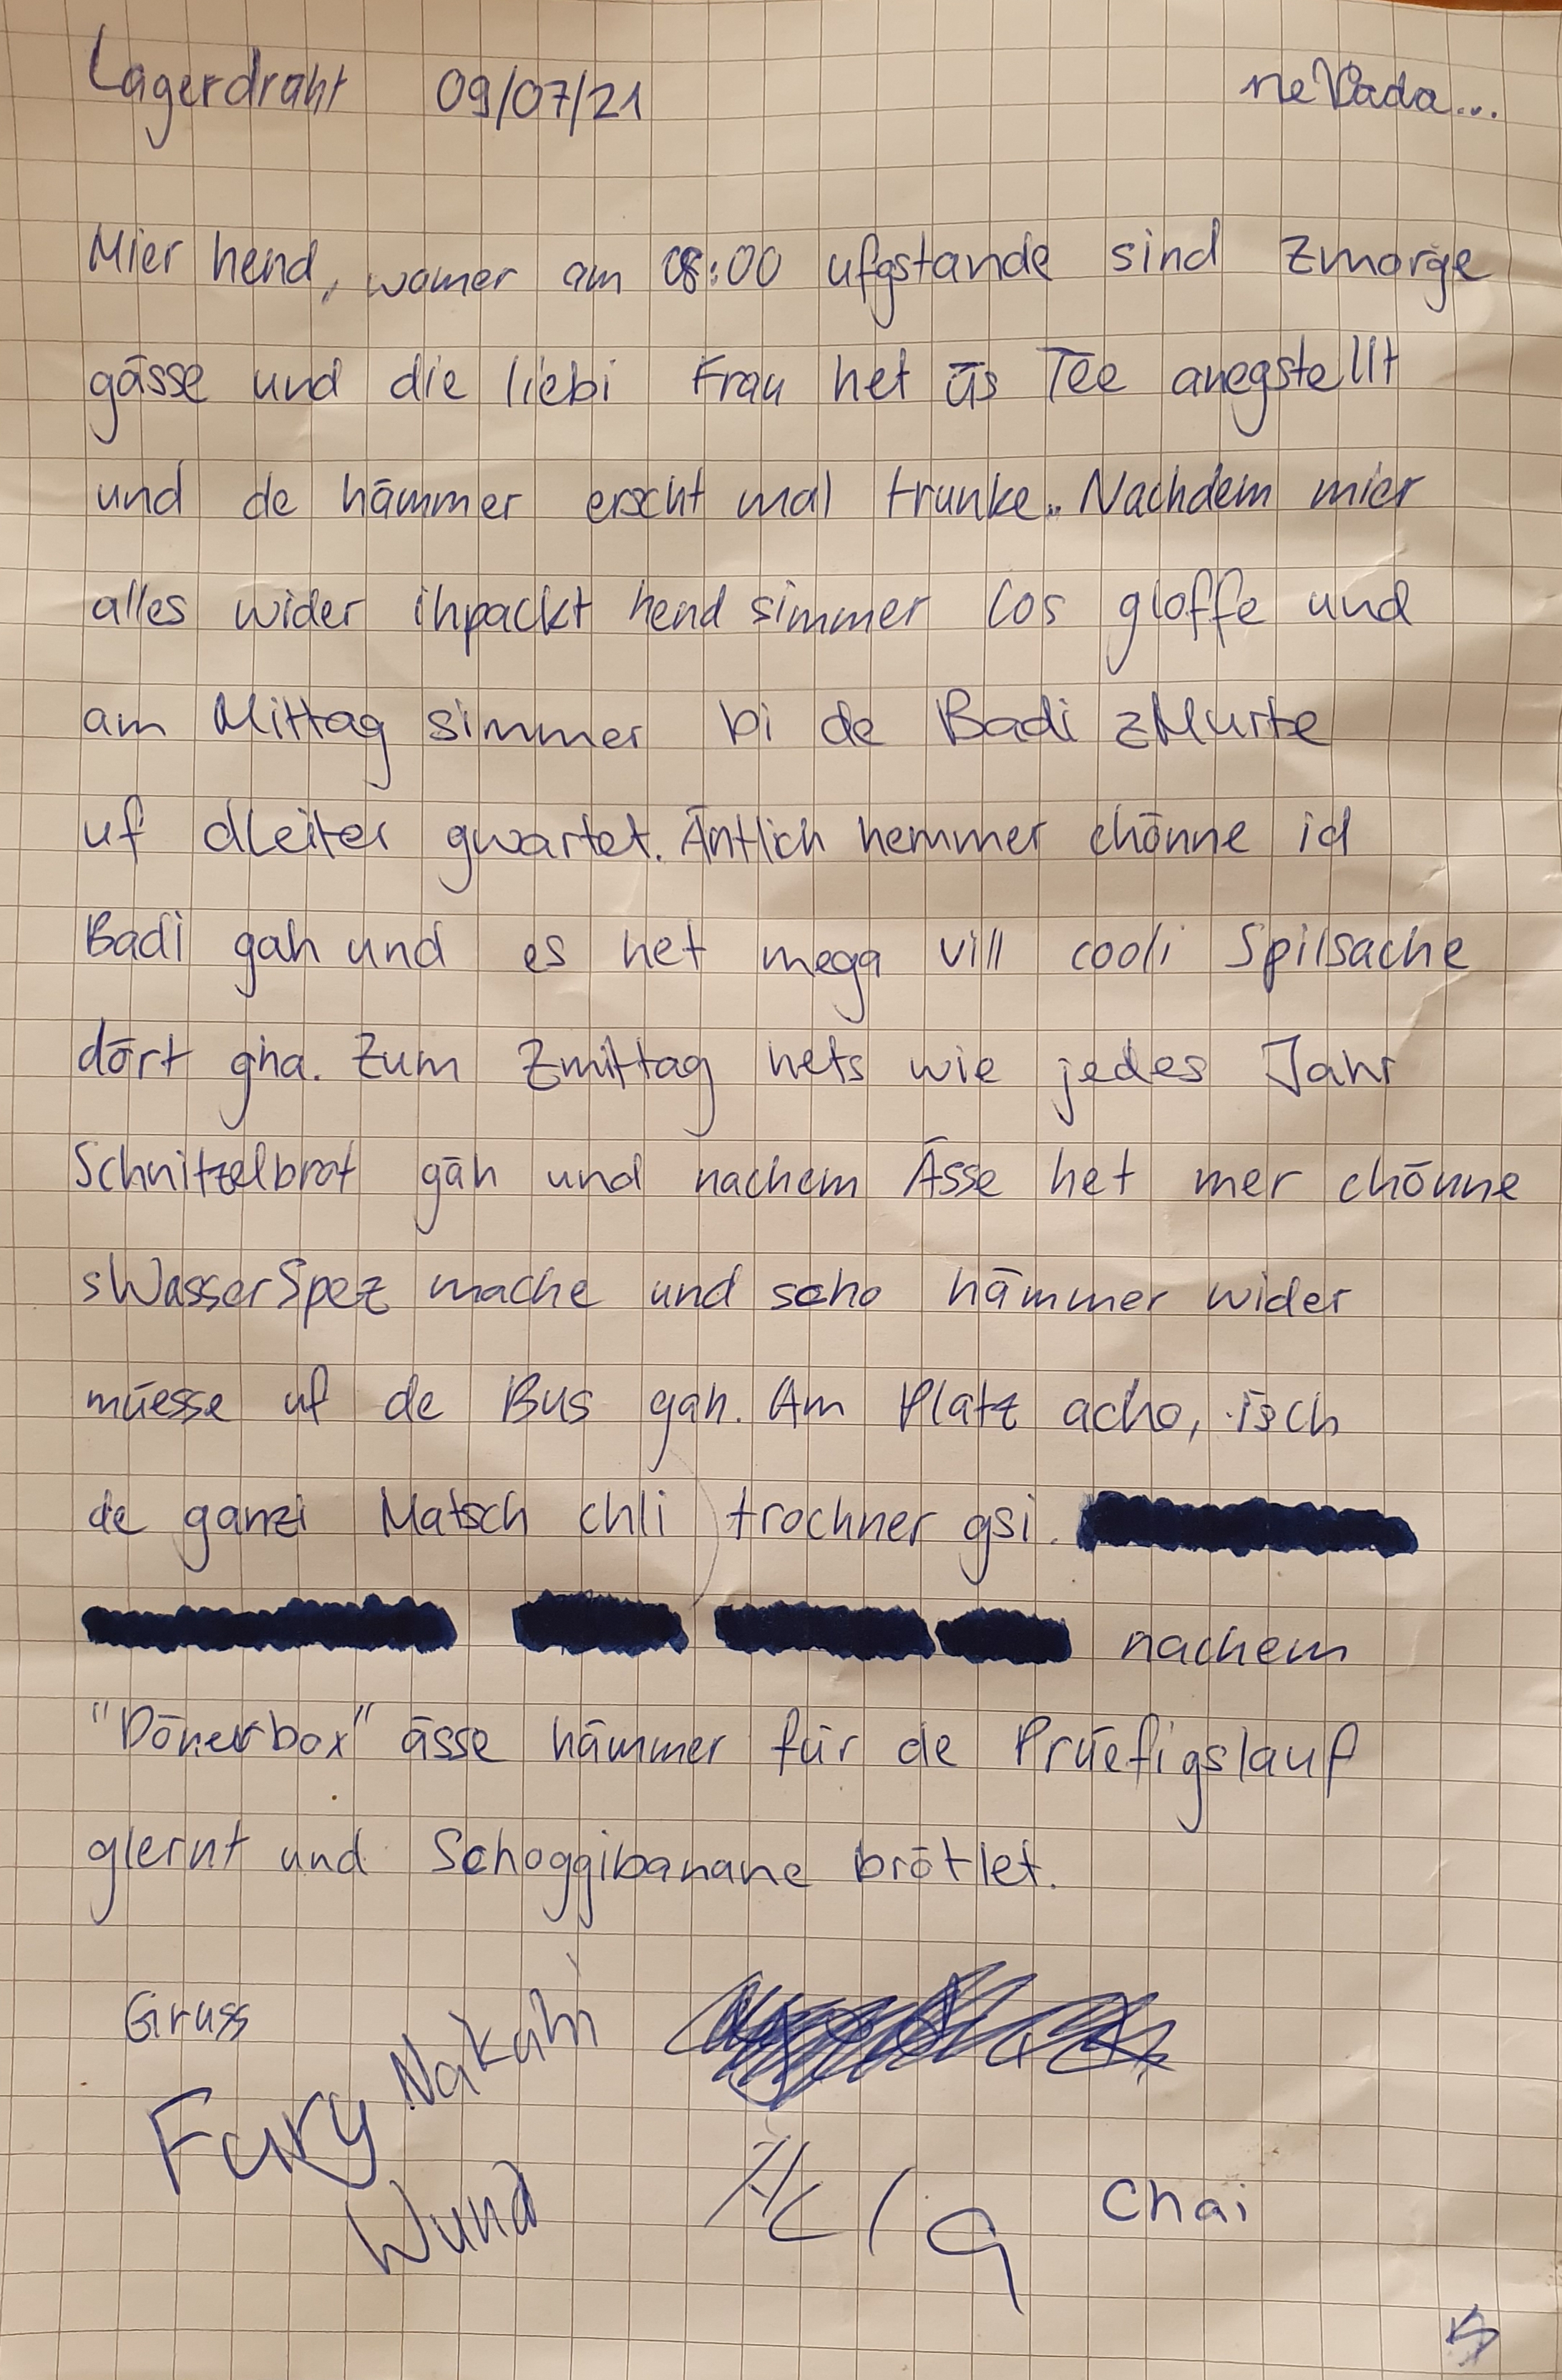 Lagerdraht 09/07/21 neVada...
Mier hend, womer am 08:00 ufgstande sind Zmorge
gässe und die liebi Frau het üs Tee anegstellt
und de hämmer erscht mal trunke.. Nachdem mier
alles wider ihpackt hend simmer los gloffe und
am Mittag simmer bi de Badi zMurte
uf dLeiter gwartet. Äntlich hemmer chönne id
Badi gah und es het mega vill cooli Spilsache
dört gha. Zum Zmittag hets wie jedes Jahr
Schnitzelbrot gäh und nachem Ässe het mer chönne
sWasserSpez mache und scho hämmer wider
müesse uf de Bus gah. Am Platz acho, isch
de ganzi Matsch chli trochner gsi.
nachem
"Dönerbox" ässe hämmer für de Prüefigslauf
glernt und Schoggibanane brötlet.
Gruss
Nakahi
Fury
Wuna
Chai